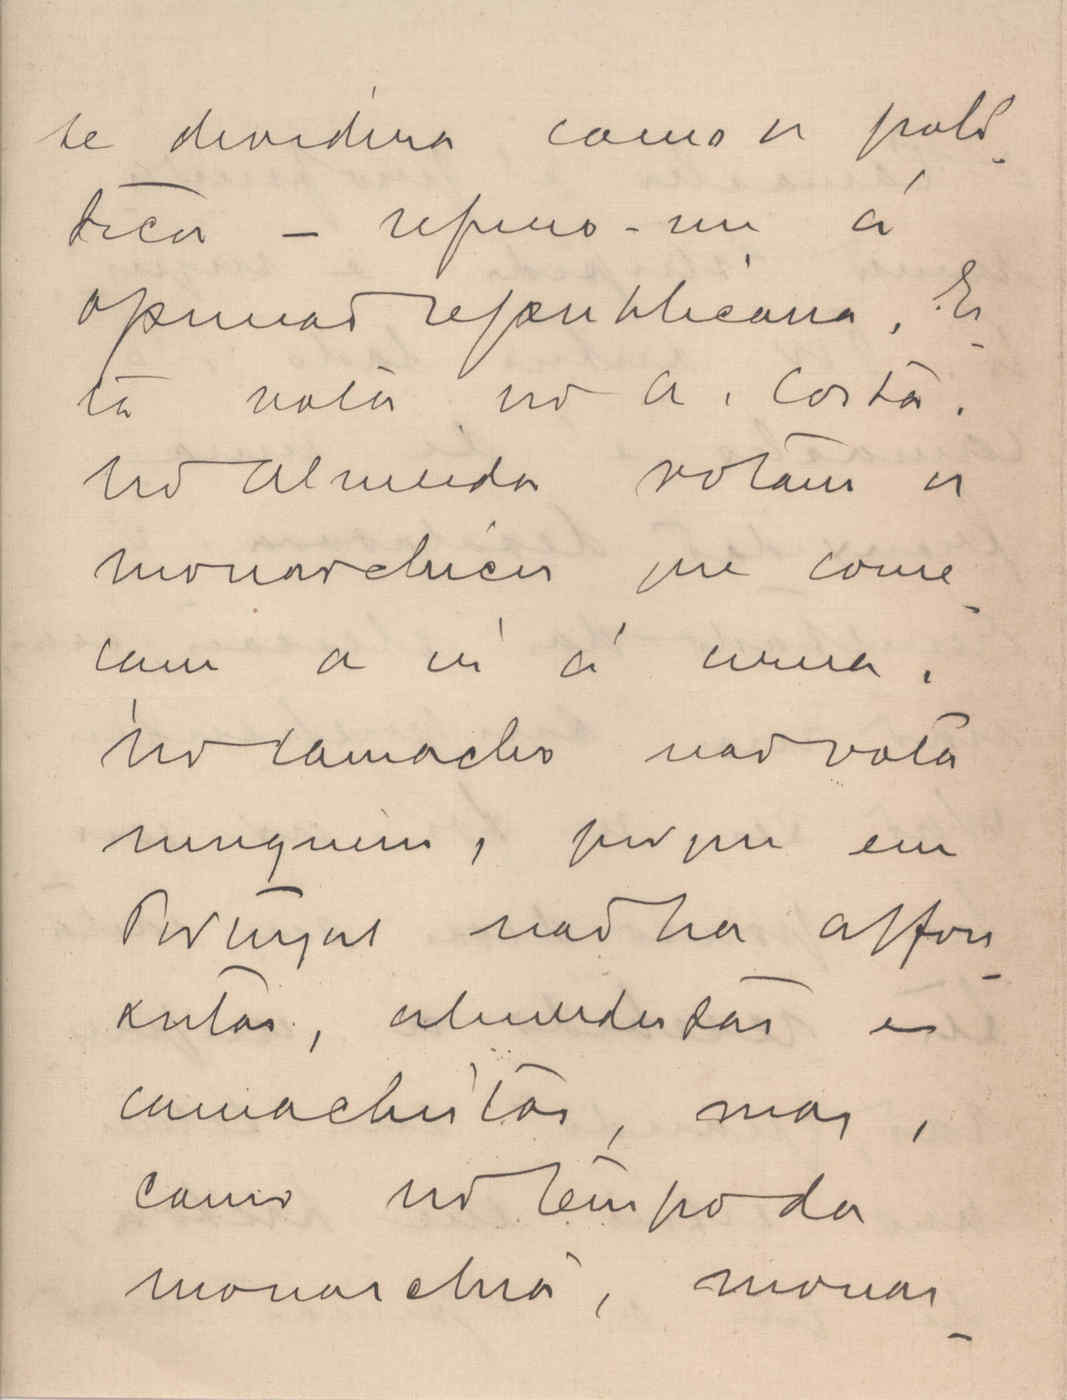 se dividira como os poli-
ticos — refiro-me á
opinião republicana. Es-
ta vota no A. Costa.
No Almeida votam os
monarchicos que come-
çam a ir á urna.
No Camacho não vota
ninguem, porque em
Portugal não ha affon-
sistas, almeidistas e
camachistas, mas,
como no tempo da
monarchia, monar-